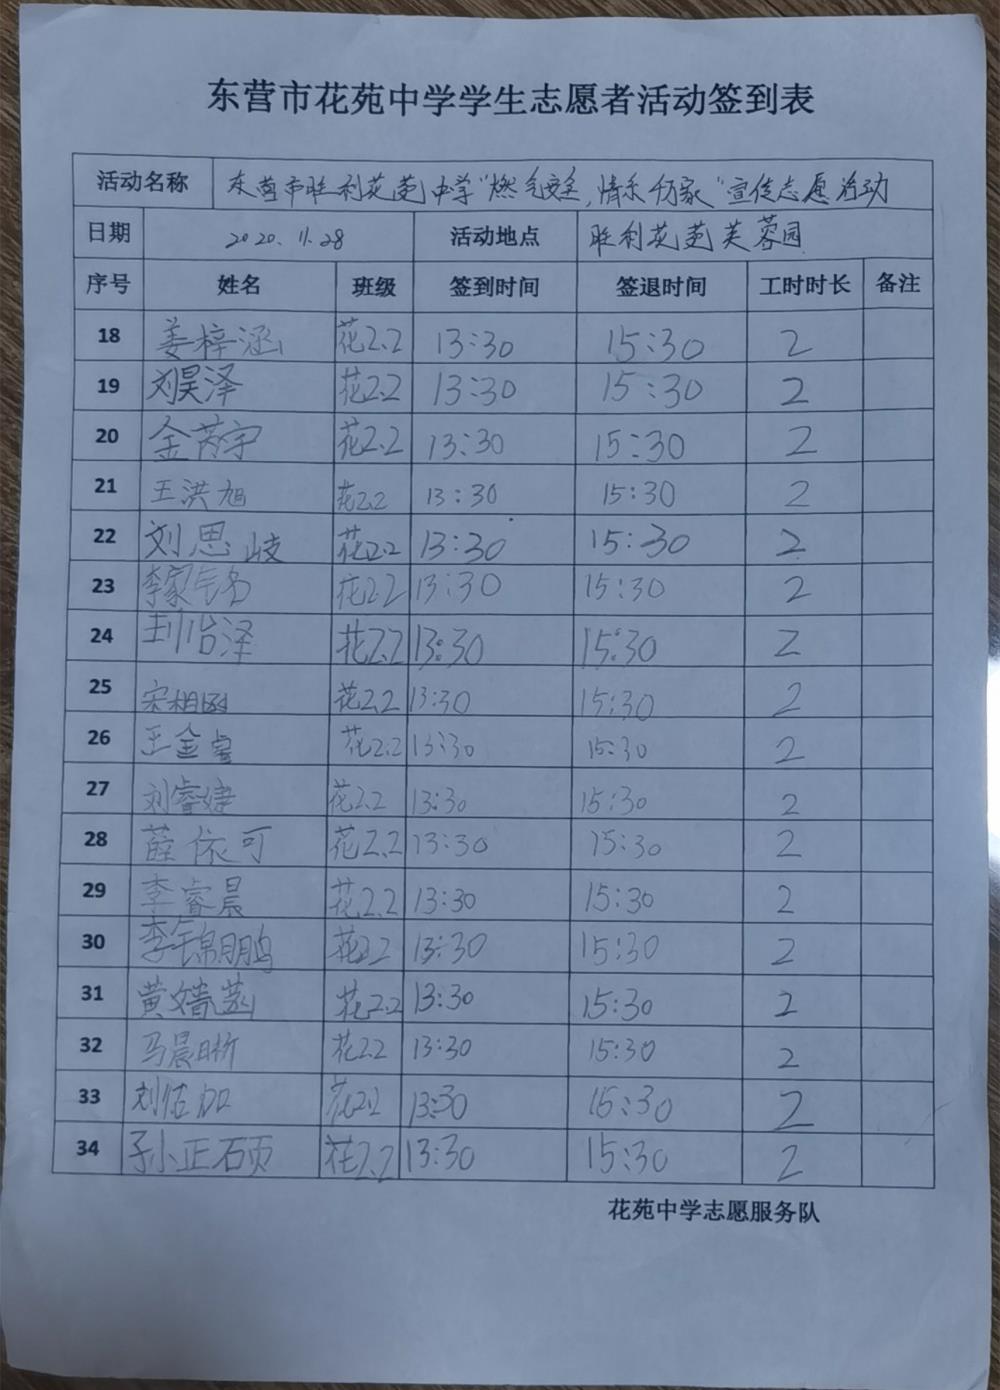 东营市花苑中学学生志愿者活动签到表
活动名称 东营市胜利花苑中学“燃气安全,情系万家”宣传志愿活动
日期 2020.11.28 活动地点 胜利花苑芙蓉园
序号 姓名 班级 签到时间 签退时间 工时时长 备注
18 姜梓涵 花2.2 13:30 15:30 2
19 刘昊泽 花2.2 13:30 15:30 2
20 金芮宇 花2.2 13:30 15:30 2
21 王洪旭 花2.2 13:30 15:30 2
22 刘思岐 花2.2 13:30 15:30 2
23 李家铭 花2.2 13:30 15:30 2
24 封怡泽 花2.2 13:30 15:30 2
25 宋相函 花2.2 13:30 15:30 2
26 王金睿 花2.2 13:30 15:30 2
27 刘睿婕 花2.2 13:30 15:30 2
28 薛依可 花2.2 13:30 15:30 2
29 李睿晨 花2.2 13:30 15:30 2
30 李锦鹏 花2.2 13:30 15:30 2
31 黄嫱菡 花2.2 13:30 15:30 2
32 马晨晰 花2.2 13:30 15:30 2
33 刘佶加 花2.2 13:30 15:30 2
34 孙正硕 花2.2 13:30 15:30 2
花苑中学志愿服务队